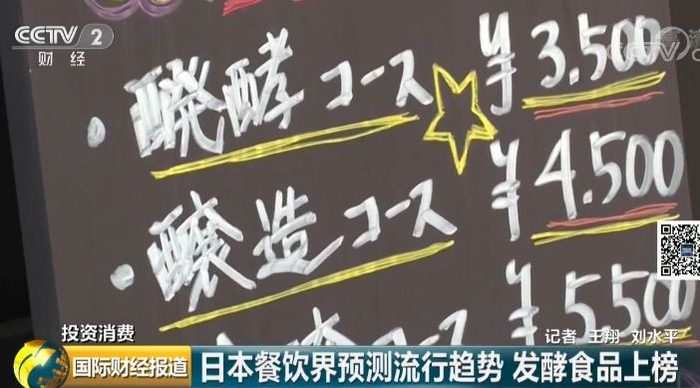 CCTV 2
财经
・醗酵コース ¥3,500
・醸造コース ¥4,500
コース ¥5,500
投资消费
记者 王翔 刘水平
国际财经报道
日本餐饮界预测流行趋势 发酵食品上榜